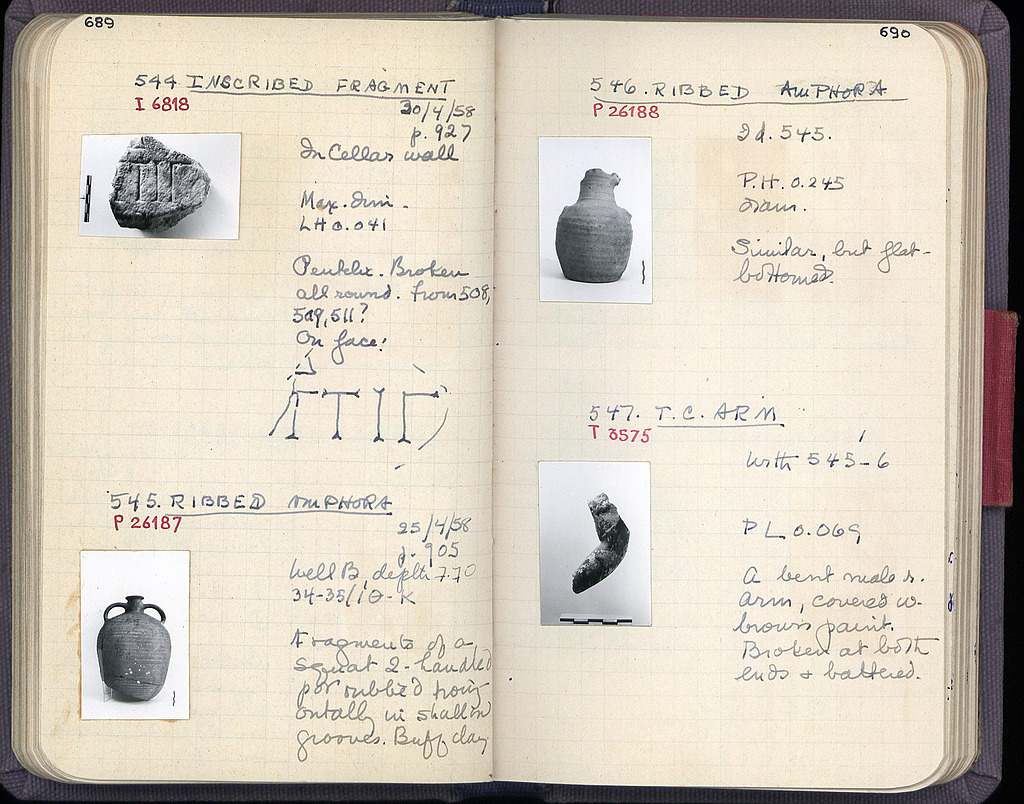 689
544 INSCRIBED FRAGMENT
I 6818
30/4/58
p. 927
In Cellar wall
Max. dim.
LH 0.041
Pentelic. Broken
all round. From 508,
509, 511?
On face:
545. RIBBED AMPHORA
P 26187
25/4/58
p. 905
Well B, depth 7.70
34-35/ΙΘ-Κ
Fragments of a
squat 2-handled
pot ribbed horiz-
ontally in shallow
grooves. Buff clay
690
546. RIBBED AMPHORA
P 26188
Id. 545.
P.H. 0.245
Diam.
Similar, but flat-
bottomed.
547. T.C. ARM
T 3575
With 545-6
P L 0.069
A bent male r.
arm, covered w.
brown paint.
Broken at both
ends + battered.